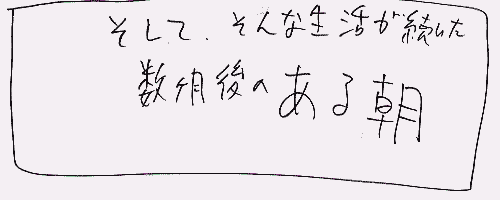 そして、そんな生活が続いた
数ヶ月後のある朝